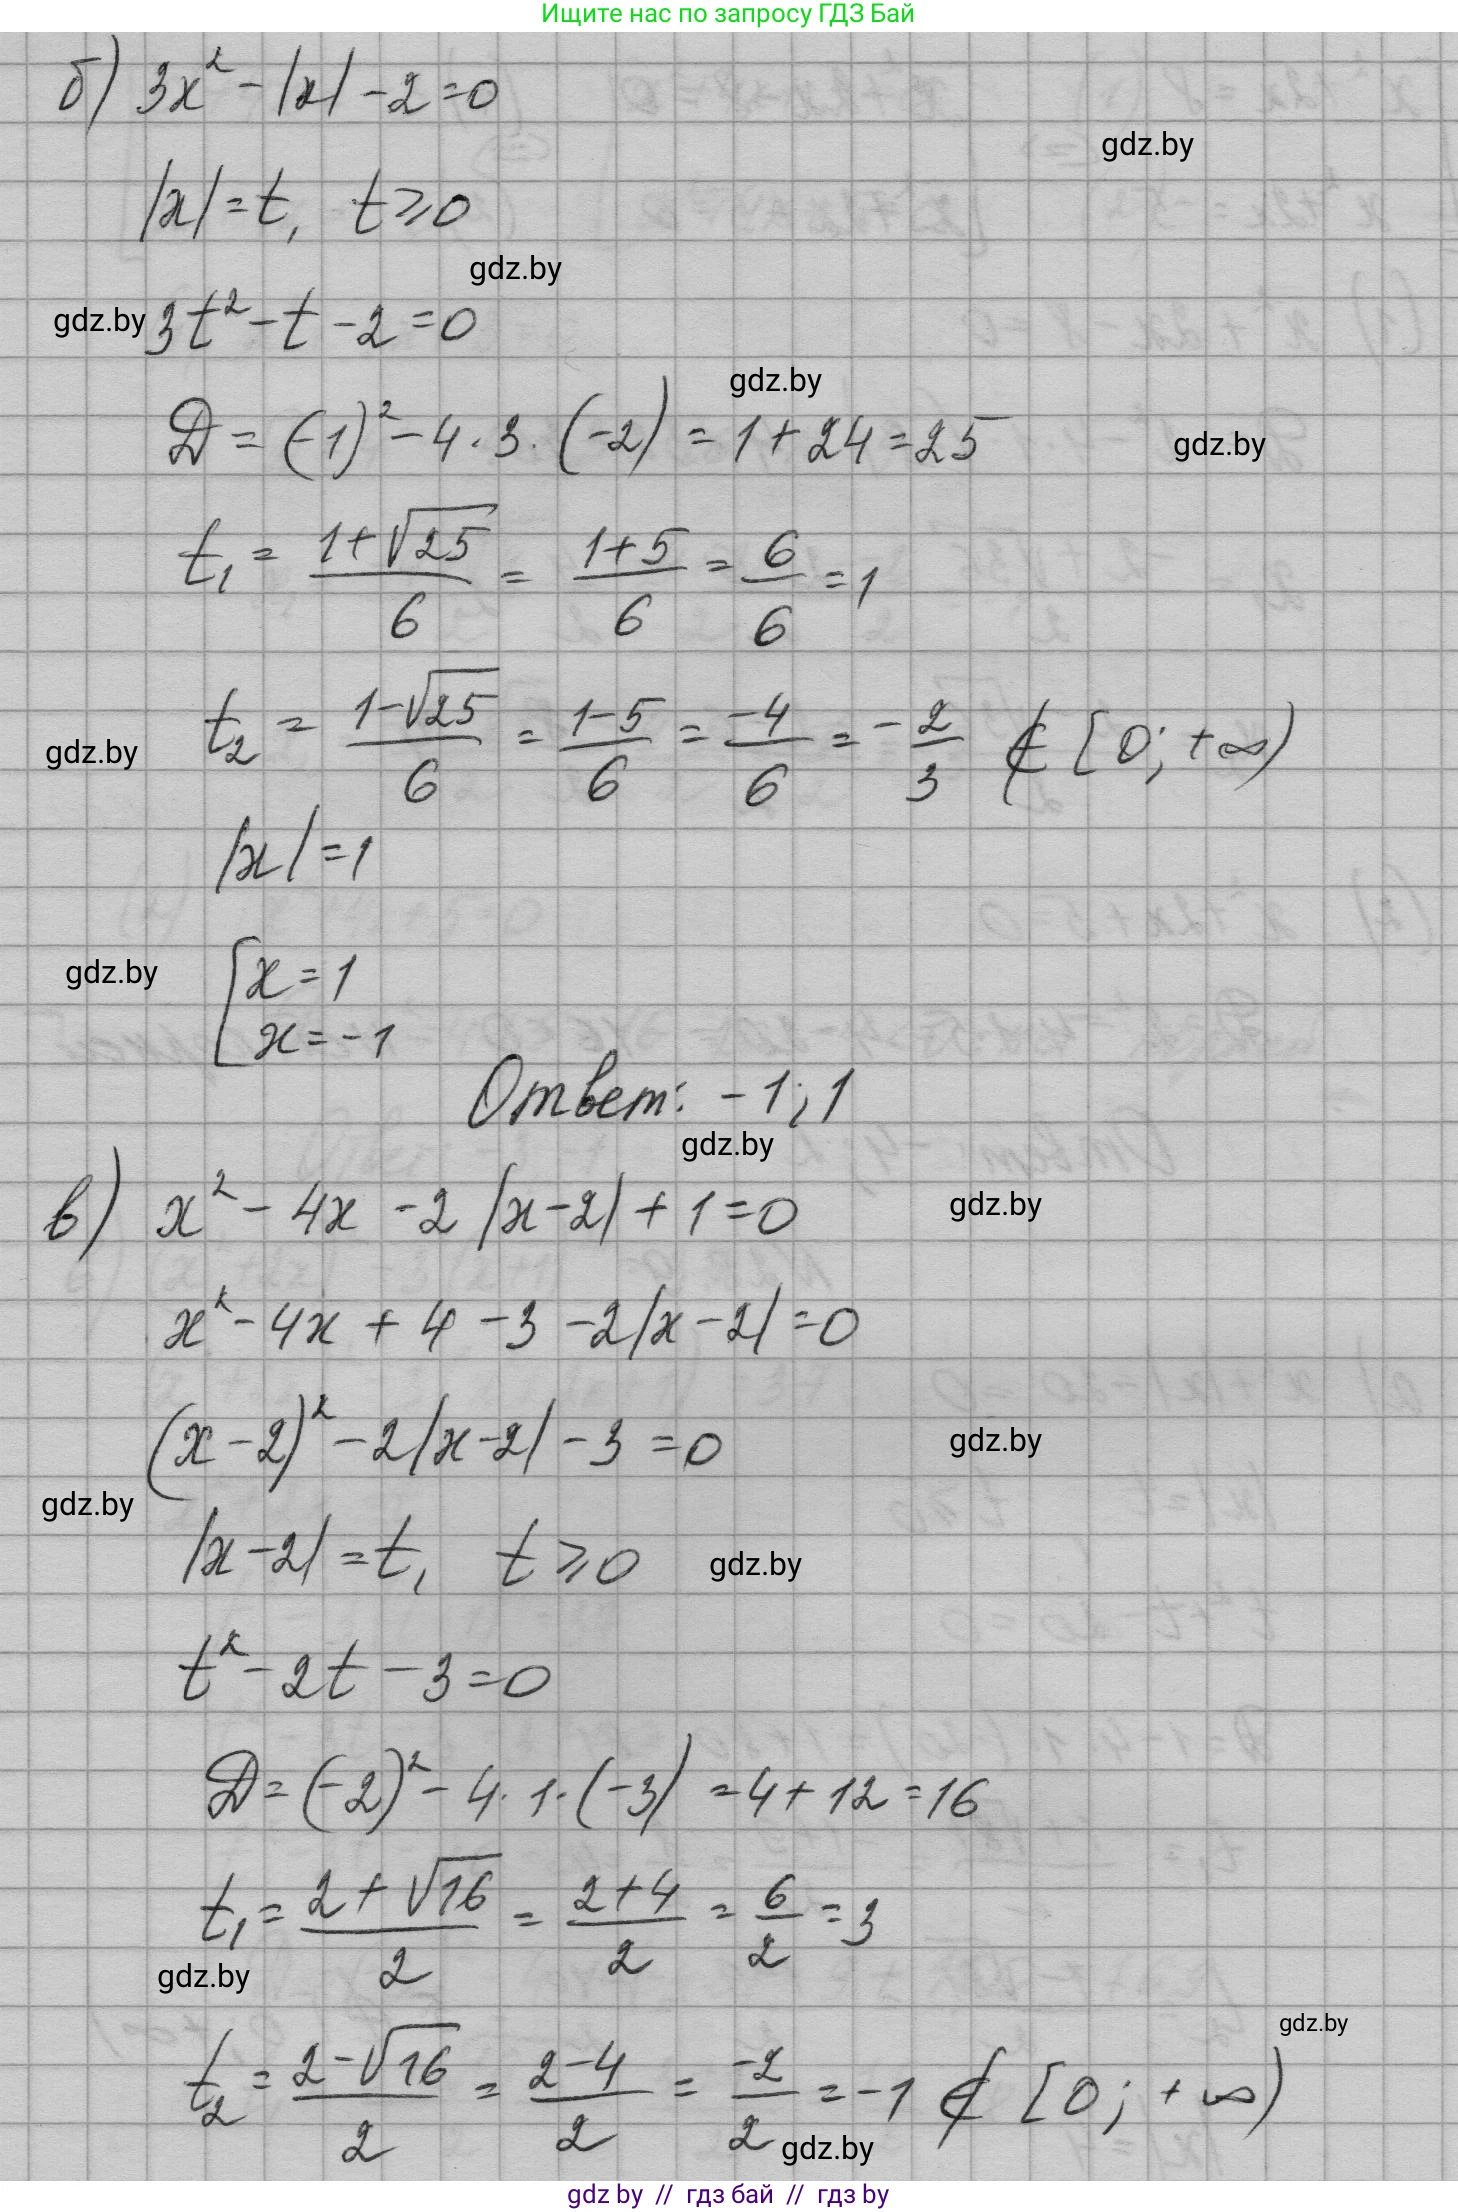 Ищите нас по запросу ГДЗ Бай
б) 3x² - |x| - 2 = 0
gdz.by
|x| = t, t ⩾ 0
gdz.by
gdz.by 3t² - t - 2 = 0
gdz.by
D = (-1)² - 4 · 3 · (-2) = 1 + 24 = 25 gdz.by
t₁ = (1+√25)/6 = (1+5)/6 = 6/6 = 1
gdz.by t₂ = (1-√25)/6 = (1-5)/6 = -4/6 = -2/3 ∉ [0; +∞)
|x| = 1
gdz.by [x = 1
x = -1
Ответ: -1; 1
gdz.by
в) x² - 4x - 2|x-2| + 1 = 0 gdz.by
x² - 4x + 4 - 3 - 2|x-2| = 0
(x-2)² - 2|x-2| - 3 = 0 gdz.by
gdz.by
|x-2| = t, t ⩾ 0 gdz.by
t² - 2t - 3 = 0
D = (-2)² - 4 · 1 · (-3) = 4 + 12 = 16
t₁ = (2+√16)/2 = (2+4)/2 = 6/2 = 3
gdz.by
gdz.by
t₂ = (2-√16)/2 = (2-4)/2 = -2/2 = -1 ∉ [0; +∞)
gdz.by
gdz by // гдз бай // гдз by